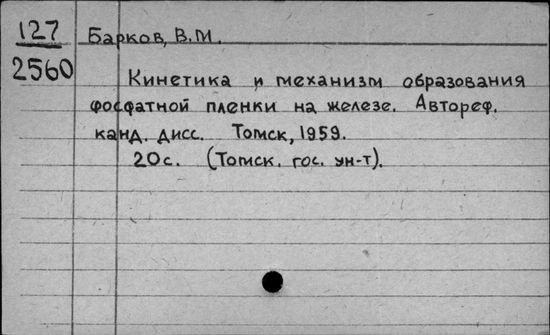 127
2560
Барков, В.М.
Кинетика и механизм образования
фосфатной пленки на железе. Автореф.
канд. дисс. Томск, 1959.
20с. (Томск. гос. ун-т).